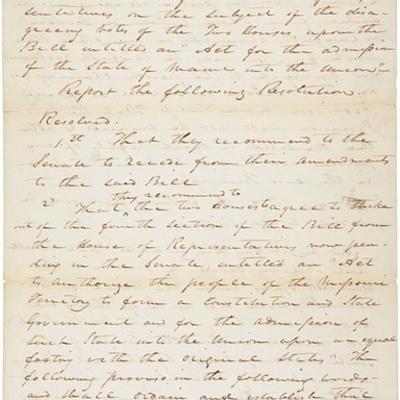 sentatives on the subject of the disa
greeing votes of the Two Houses, upon the
Bill entitled an "Act for the admission
of the State of Maine into the Union"
Report the following Resolution.
Resolved.
1st That they recommend to the
Senate to recede from their amendments
to the said Bill
they recommend to
2d That the two Houses agree to strike
out of the fourth section of the Bill from
the House of Representatives now pen-
ding in the Senate, entitled an "Act
to authorize the people of the Missouri
Territory to form a Constitution and State
Government and for the admission of
such State into the Union upon an equal
footing with the original States" the
following proviso in the following words
and shall ordain and establish that